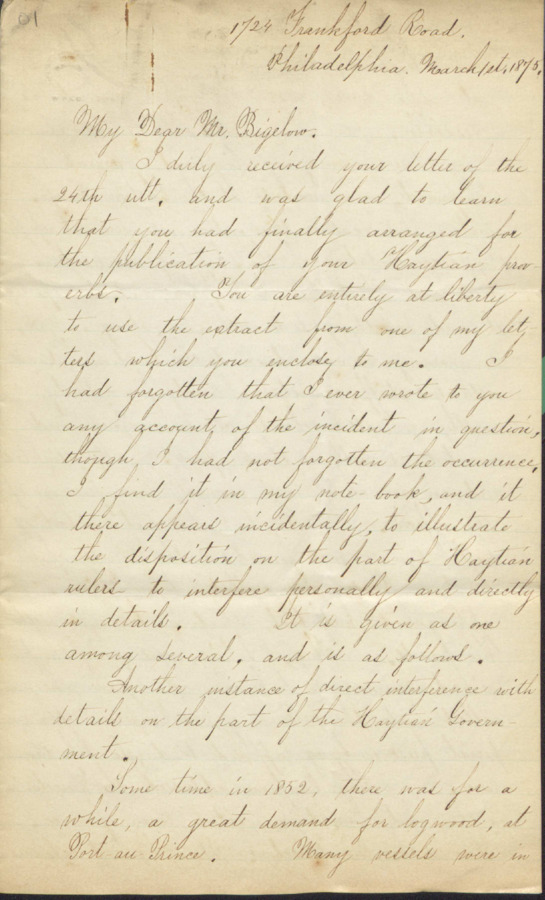 01
1724 Frankford Road.
Philadelphia. March 1st, 1875.
My Dear Mr. Bigelow.
I duly received your letter of the
24th ult. and was glad to learn
that you had finally arranged for
the publication of your Haytian prov-
erbs. You are entirely at liberty
to use the extract from one of my let-
ters which you enclose to me. I
had forgotten that I ever wrote to you
any account of the incident in question,
though I had not forgotten the occurrence.
I find it in my note-book, and it
there appears incidentally, to illustrate
the disposition on the part of Haytian
rulers to interfere personally and directly
in details. It is given as one
among several, and is as follows.
Another instance of direct interference with
details on the part of the Haytian Govern-
ment.
Some time in 1852, there was for a
while, a great demand for logwood, at
Port au Prince. Many vessels were in